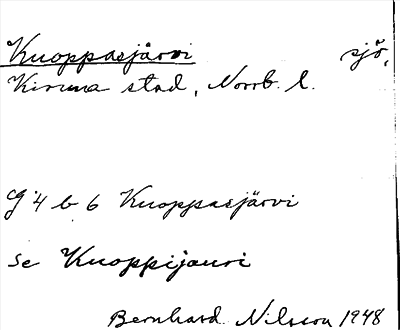 Kuoppasjärvi sjö,
Kiruna stad, Norrb. l.
G 4 b 6 Kuoppasjärvi
se Kuoppijauri
Bernhard Nilsson 1948